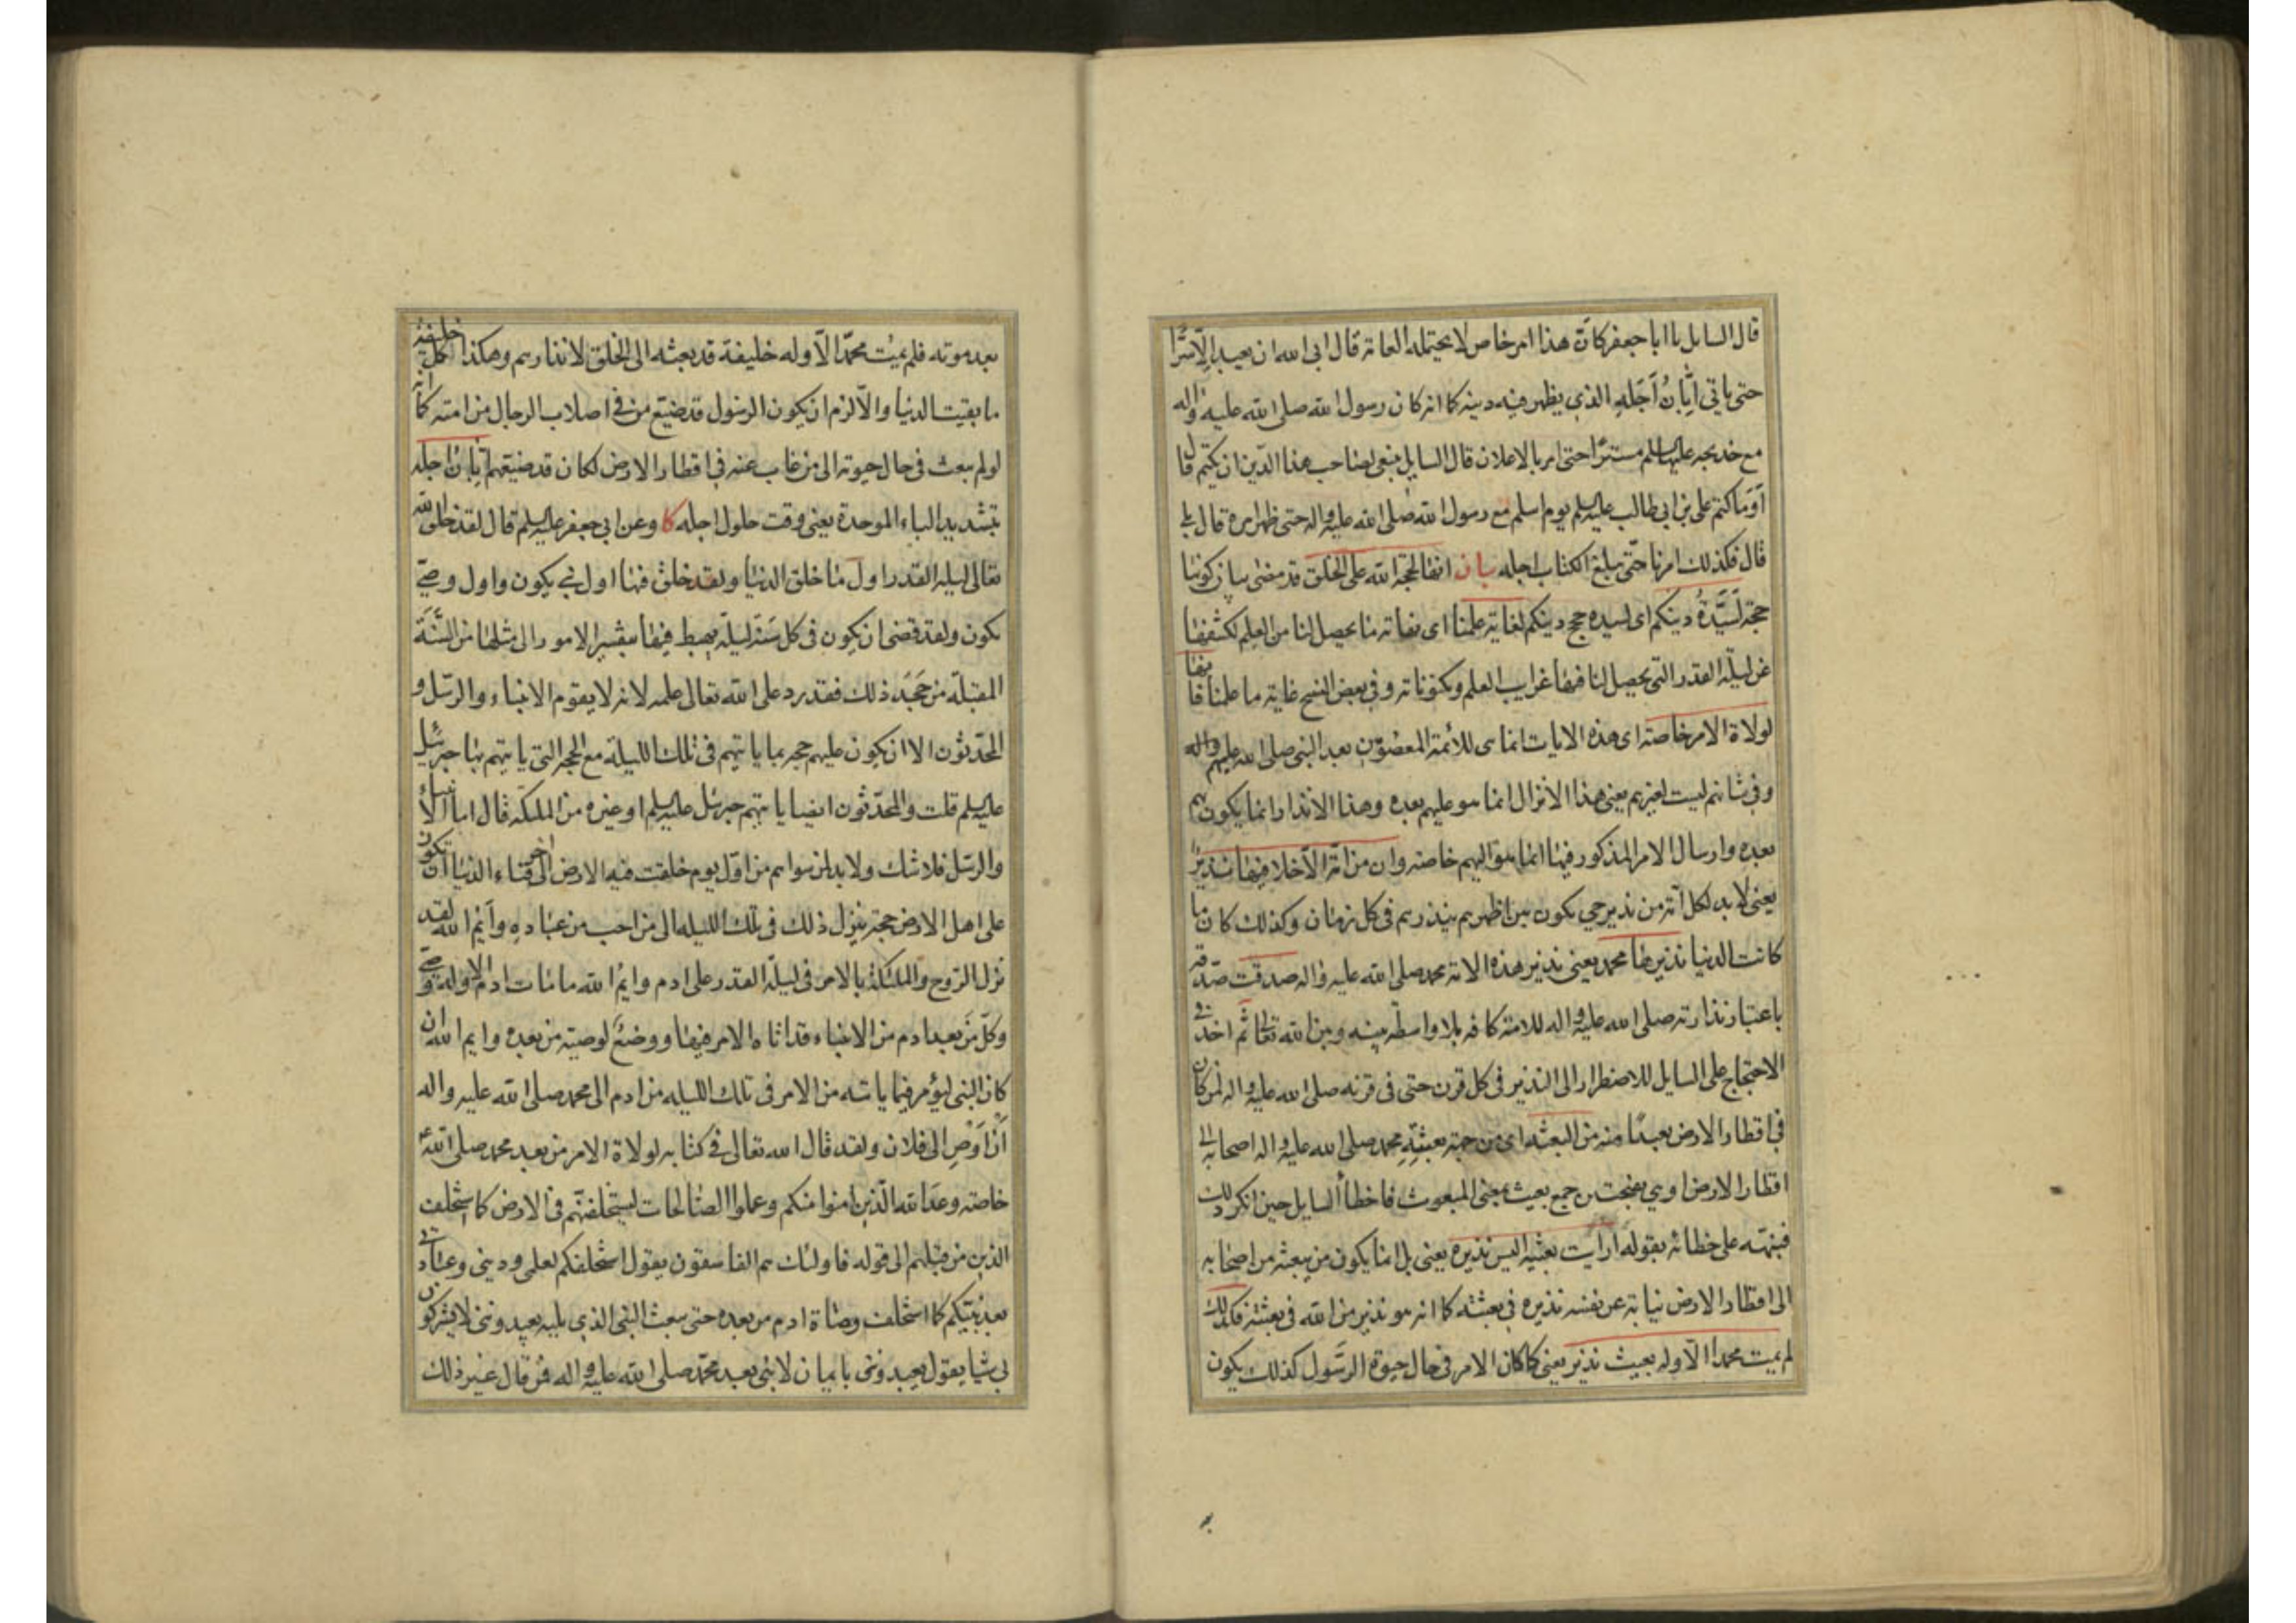 قال السايل يا ابا جعفر كان هذا امر خاص لا يحتمله العامة قال ابى الله ان يعبد الا سرا
حتى ياتي ابان اجله الذي يظهر فيه دينه كما انه كان رسول الله صلى الله عليه واله
مع خديجه عليها السلم مستترا حتى امر بالاعلان قال السايل ينبغي لصاحب هذا الدين ان يكتم قال
او ما كتم على بن ابي طالب عليه السلم يوم اسلم مع رسول الله صلى الله عليه واله حتى ظهر امره قال بلى
قال فكذلك امرنا حتى يبلغ الكتاب اجله بيان انها لحجة الله على الخلق قد مضى بيان كونها
حجة لسيدة دينكم اى لسيده حجج دينكم لغاية علمنا اى نهاية ما يحصل لنا من العلم لكشفها
عن ليلة القدر التي يحصل لنا فيها غرايب العلم ومكنوناته وفي بعض النسخ غاية ما علمنا فانها
لولاة الامر خاصة اى هذه الايات انما هى للائمة المعصومين بعد النبي صلى الله عليهم واله
وفي شانهم ليست لغيرهم يعنى هذا الانزال انما هو عليهم بعده وهذا الانذار انما يكون بهم
بعده وارسال الامر المذكور فيها انما هو اليهم خاصة وان من امة الا خلا فيها نذير
يعنى لا بد لكل امة من نذير حي يكون بين اظهرهم ينذرهم في كل زمان وكذلك كان ما
كانت الدنيا نذيرها محمد يعنى نذير هذه الامة محمد صلى الله عليه واله صدقت صدقه
باعتبار نذارته صلى الله عليه واله للامة كافه بلا واسطة بينه وبين الله تعالى ثم اخذ في
الاحتجاج على السايل للاضطرار الى النذير في كل قرن حتى في قرنه صلى الله عليه واله لمن كان
في اقطار الارض بعيدا منه من البعثه اى من جهة بعثته محمد صلى الله عليه واله اصحابه الى
اقطار الارض او هي بفتحتين جمع بعيث بمعنى المبعوث فاخطأ السايل حين انكر ذلك
فنبهه على خطائه بقوله أرايت بعيثه اليس نذيره يعنى بل انما يكون من يبعثه من اصحابه
الى اقطار الارض نيابة عن نفسه نذيره في بعثته كما انه هو نذير من الله في بعثته فكذلك
لم يمت محمد الا وله بعيث نذير يعنى كما كان الامر في حال حيوة الرسول كذلك يكون
بعد موته فلم يمت محمد الا وله خليفة قد بعثه الى الخلق لانذارهم وهكذا كل خليفة
ما بقيت الدنيا والا لزم ان يكون الرسول قد ضيع من في اصلاب الرجال من امته كما انه
لو لم يبعث في حال حيوته الى من غاب عنه في اقطار الارض لكان قد ضيعهم ابان اجله
بتشديد الباء الموحدة يعنى وقت حلول اجله كا وعن ابي جعفر عليه السلم قال لقد خلق الله
تعالى ليله القدر اول ما خلق الدنيا ولقد خلق فيها اول نبي يكون واول وصي
يكون ولقد قضى ان يكون في كل سنة ليلة يهبط فيها بتفسير الامور الى مثلها من السنة
المقبلة من جحد ذلك فقد رد على الله تعالى علمه لانه لا يقوم الانبياء والرسل و
المحدثون الا ان يكون عليهم حجة بما ياتيهم في تلك الليلة مع الحجة التي ياتيهم بها جبرئيل
عليه السلم قلت والمحدثون ايضا ياتيهم جبرئل عليه السلم او غيره من الملئكة قال اما الانبياء
والرسل فلا شك ولا بد لمن سواهم من اول يوم خلقت فيه الارض الى اخر فناء الدنيا ان تكون
على اهل الارض حجة ينزل ذلك في تلك الليله الى من احب من عباده وايم الله لقد
نزل الروح والملئكة بالامر في ليلة القدر على ادم وايم الله ما مات ادم الا وله وصي
وكل من بعد ادم من الانبياء قد اتاه الامر فيها ووضع لوصيته من بعده وايم الله ان
كان النبي ليؤمر فيما ياتيه من الامر في تلك الليله من ادم الى محمد صلى الله عليه واله
ان اوص الى فلان ولقد قال الله تعالى في كتابه لولاة الامر من بعد محمد صلى الله ع
خاصة وعد الله الذين امنوا منكم وعملوا الصالحات ليستخلفنهم في الارض كما استخلف
الذين من قبلهم الى قوله فاولئك هم الفاسقون يقول استخلفكم لعلمى ودينى وعبادتي
بعد نبيكم كما استخلف وصاة ادم من بعده حتى يبعث النبي الذي يليه يعبدونني لا يشركون
بي شيا يقول يعبدونني بايمان لا نبي بعد محمد صلى الله عليه واله فمن قال غير ذلك